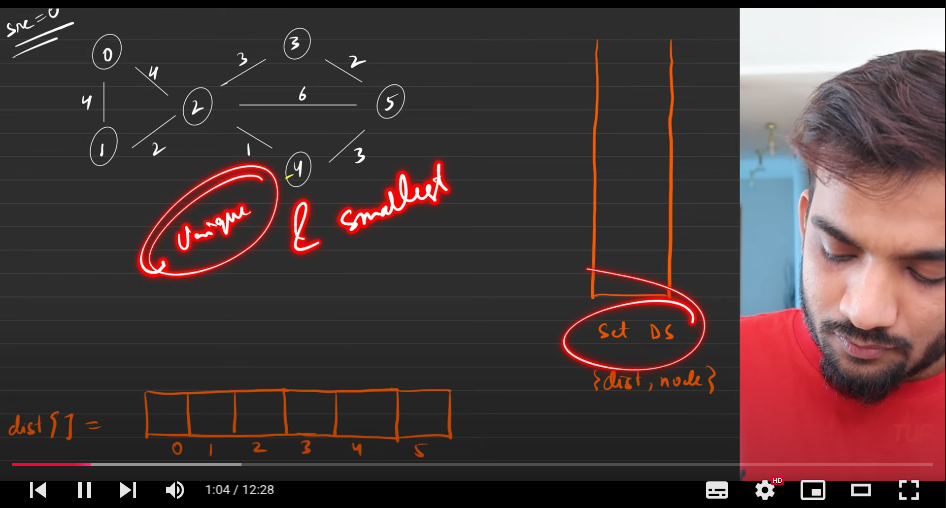 src=0
0
3
4
3
2
4
2
6
5
1
2
1
3
4
Unique & smallest
Set DS
{dist, node}
dist[] =
0 1 2 3 4 5
TUF
1:04 / 12:28
HD